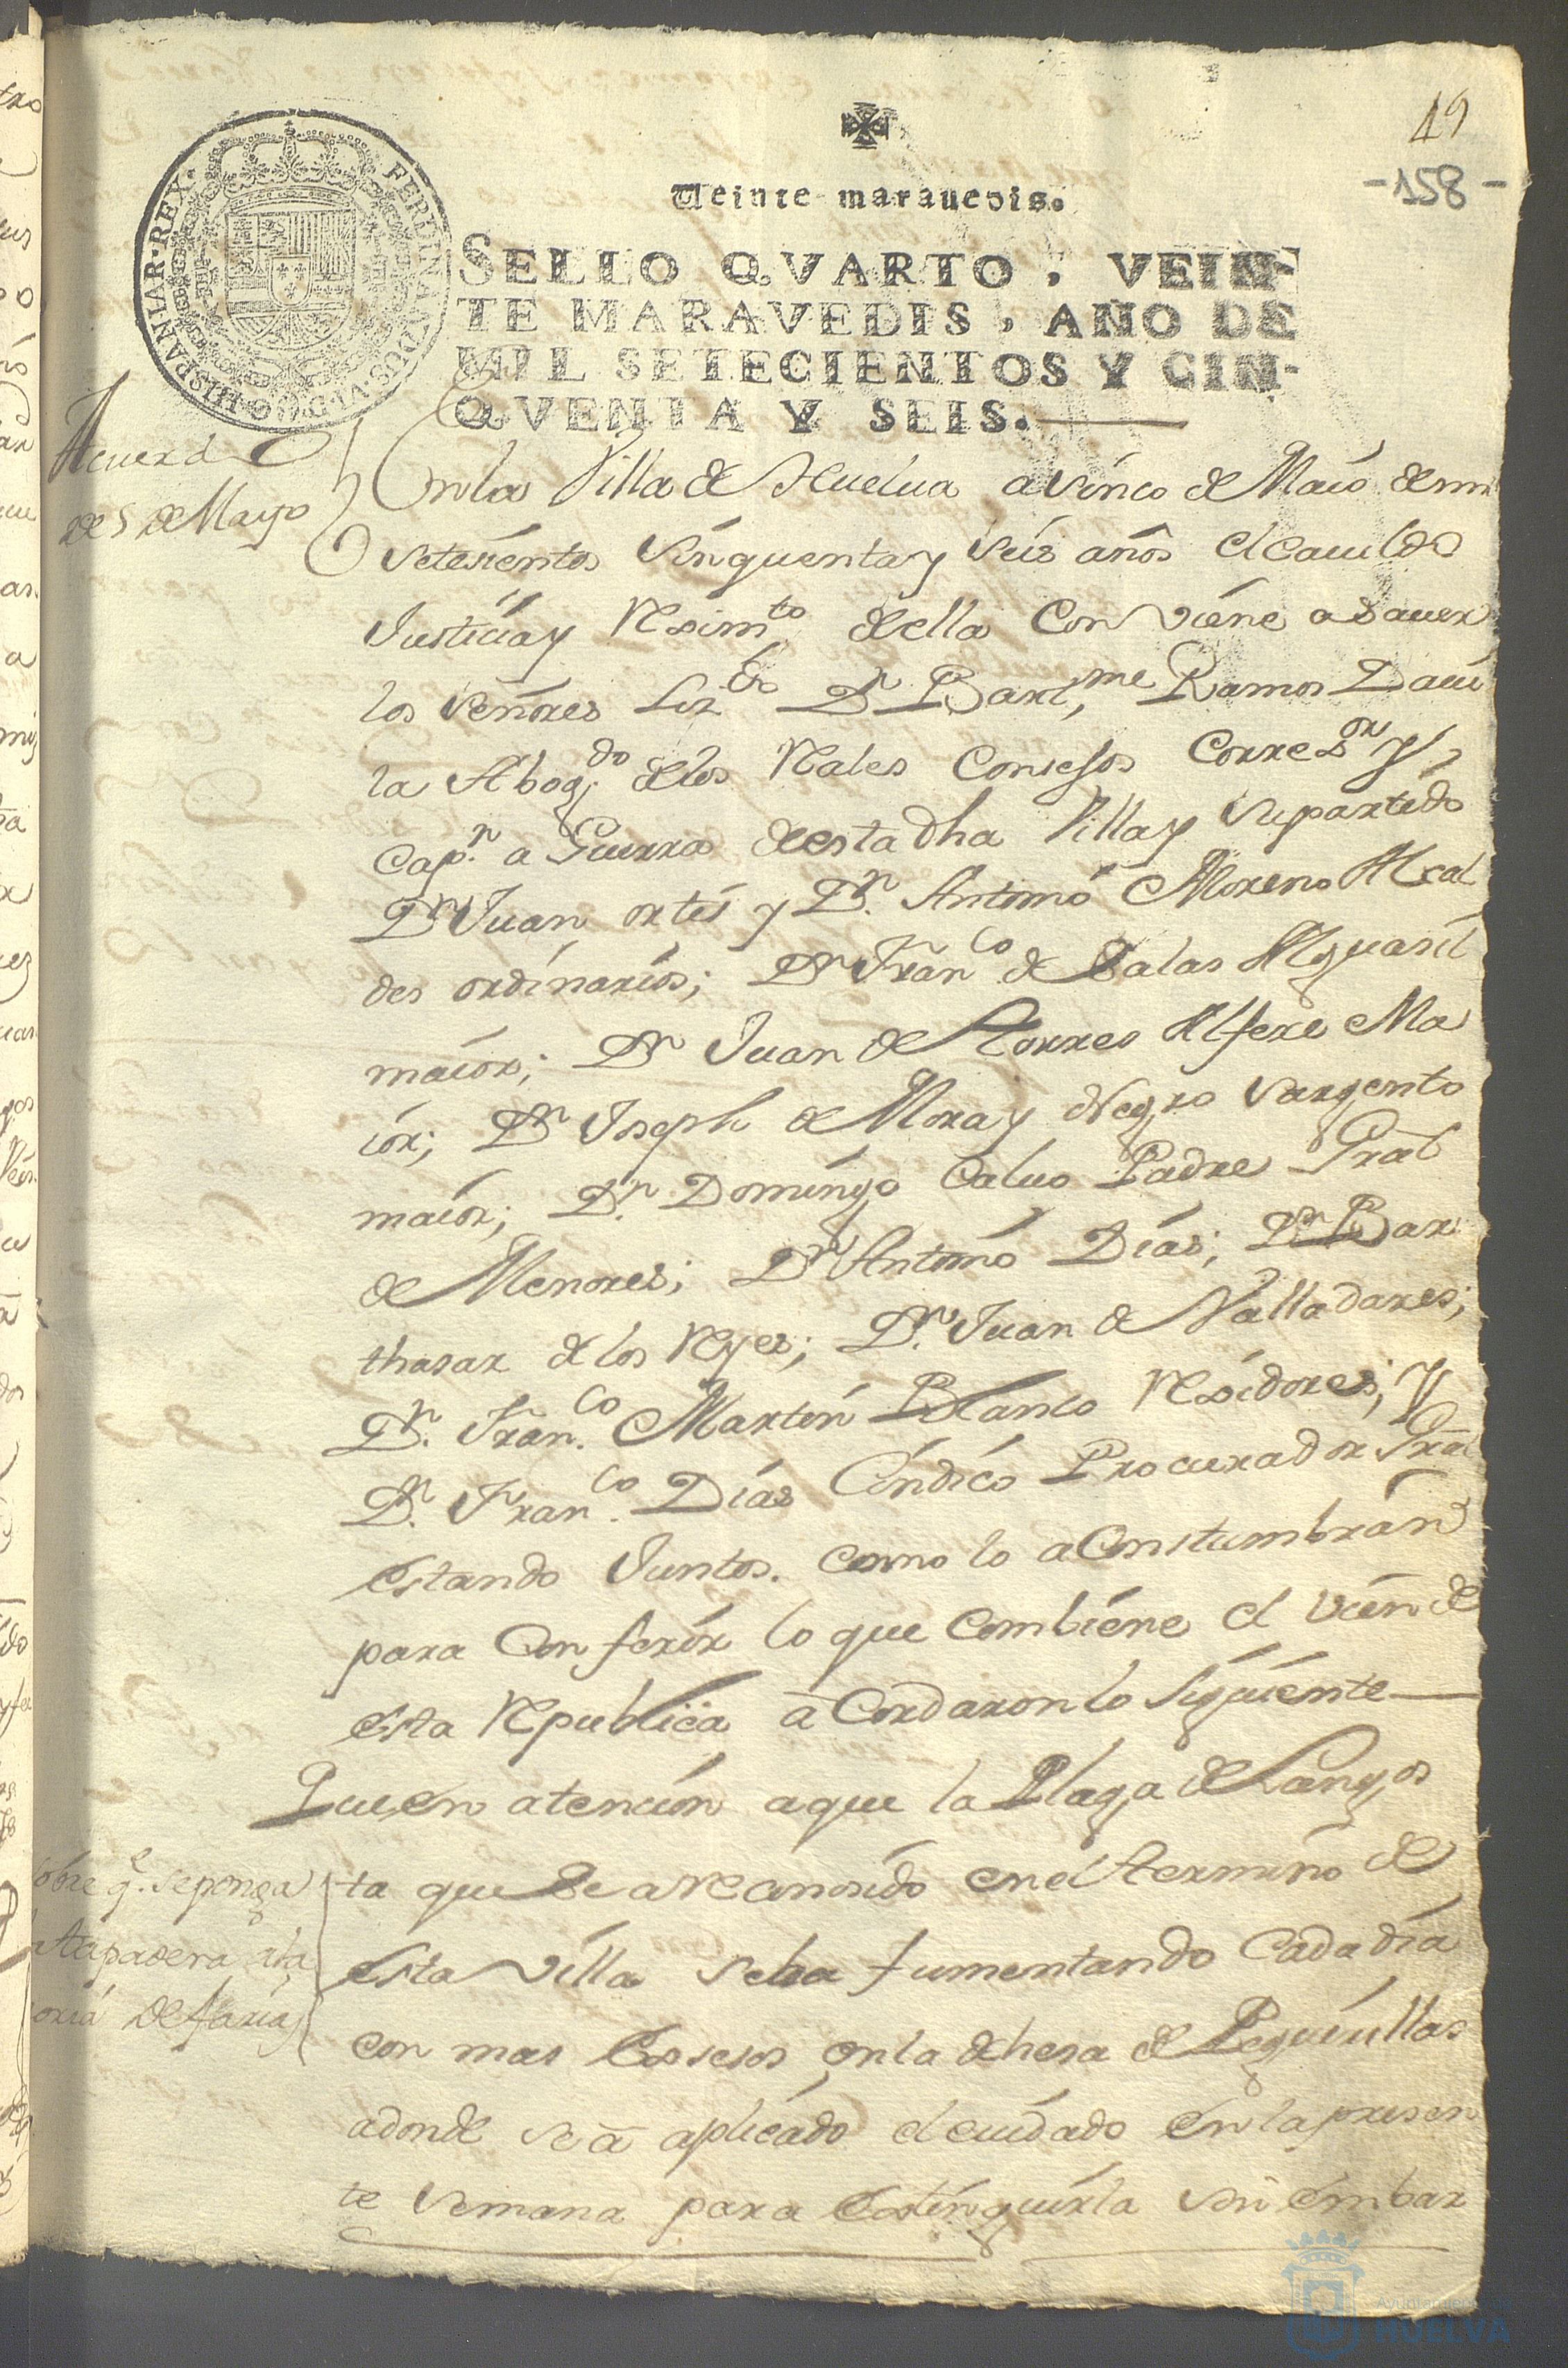 49
-158-
Veinte maravedis.
SELLO QVARTO, VEIN-
TE MARAVEDIS, AÑO DE
MIL SETECIENTOS Y CIN-
QVENTA Y SEIS.
FERDINANDUS·VI·D·G·HISPANIAR·REX·
Acuerdo
de 5 de Mayo
En la Villa de Huelua a sinco de Maio de mil
setesientos sinquenta y seis años el cauildo
Justicia y Reximto della conviene a sauer
los señores Lizdo Dn Bartme Ramos Daui
la Abogdo de los Rales Consejos Correxor y
Capn a Guerra desta dha Villa y su partido
Dn Juan ortis y Dn Antonio Moreno Alcal
des ordinarios; Dn Franco de Salas Alguasil
maior; Dn Juan de Torres Alfere Ma
ior; Dn Joseph de Mora y Negro sargento
maior; Dn Domingo Caluo Padre Gral
de Menores; Dn Antonio Dias; Dn Bar
thasar de los Reyes; Dn Juan de Valladares;
Dn Franco Martin Blanco Rexidores; y
Dn Franco Dias Cindico Procurador Gral
estando Juntos como lo aconstumbran
para Conferir lo que combiene el vien de
esta Republica acordaron lo siguiente
Que en atencion a que la Plaga de Langos
ta que se a reconosido en el termino de
esta villa se ba fumentando cada dia
con mas Exsesos en la dehesa de Peguerillas
adonde se a aplicado el cuidado en la presen
te semana para Extinguirla sin embar
sobre qe se ponga
tapadera a la
noria de farias
Ayuntamiento de
HUELVA